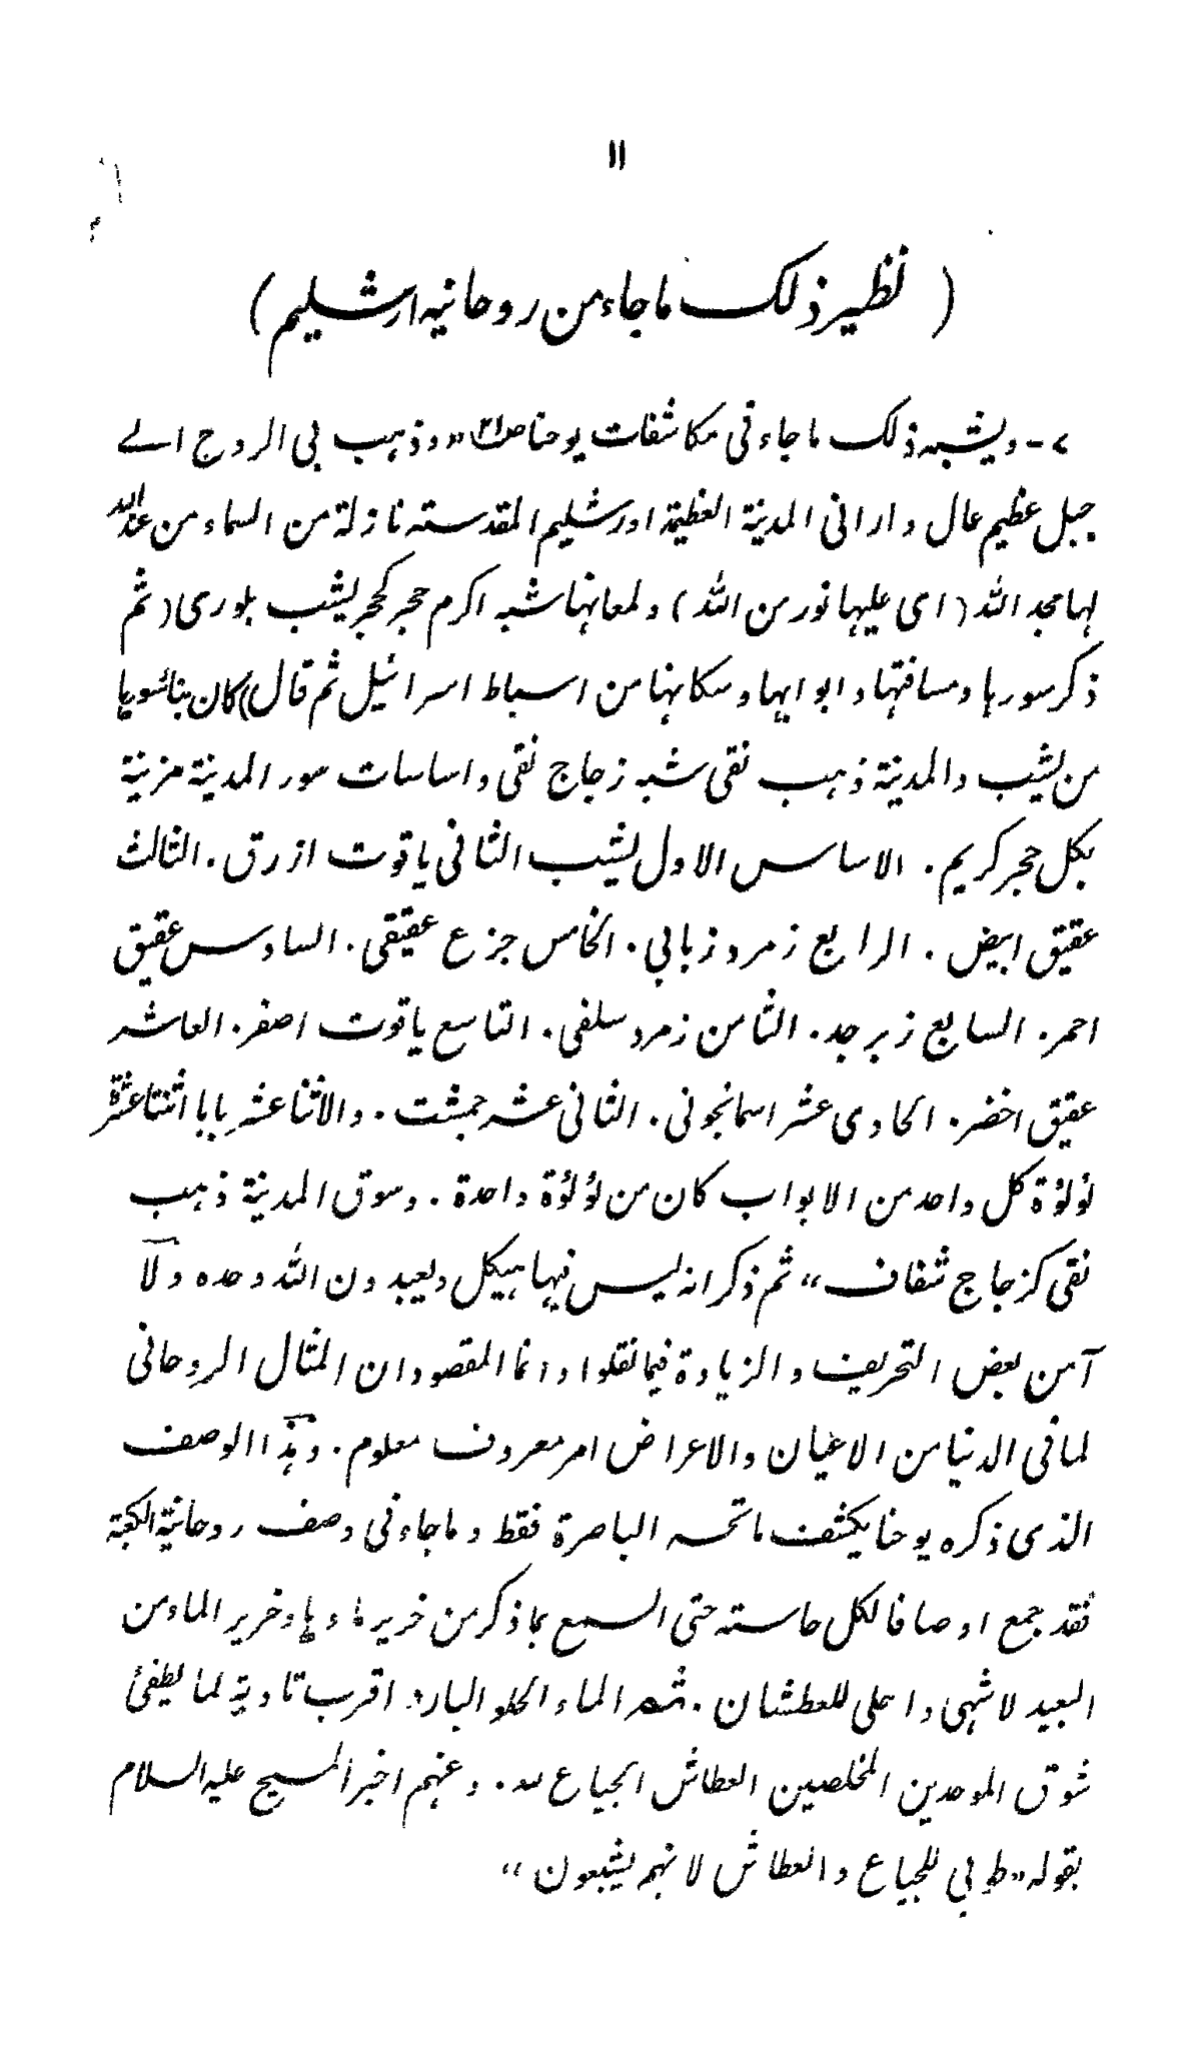 ۱۱
( نظیر ذلک ماجاء من روحانیہ ارشلیم )
۷- ویشبہ ذلک ماجاء فی مکاشفات یوحنا ص۲۱ «وذہب بی الروح الے
جبل عظیم عال وارانی المدینۃ العظیمۃ اورشلیم المقدستہ نازلۃ من السماء من عند اللہ
لہا مجد اللہ (ای علیہا نور من اللہ) ولمعانہا شبہ اکرم حجر کحجر یشب بلوری (ثم
ذکر سورہا ومسافتہا وابوابہا وسکانہا من اسباط اسرائیل ثم قال) کان بنائسوہا
من یشب والمدینۃ ذہب نقی شبہ زجاج نقی واساسات سور المدینۃ مزینۃ
بکل حجر کریم. الاساس الاول یشب الثانی یاقوت ازرق. الثالث
عقیق ابیض. الرابع زمرد ذبابی. الخامس جزع عقیقی. السادس عقیق
احمر. السابع زبرجد. الثامن زمرد سلفی. التاسع یاقوت اصفر. العاشر
عقیق اخضر. الحادی عشر اسمانجونی. الثانی عشر جمشت. والاثنا عشر بابا اثنتا عشرۃ
لؤلؤۃ کل واحد من الابواب کان من لؤلؤۃ واحدۃ. وسوق المدینۃ ذہب
نقی کزجاج شفاف» ثم ذکر انہ لیس فیہا ہیکل ویعبدون اللہ وحدہ ولا
آمن بعض التحریف والزیادۃ فیما نقلوا وانما المقصود ان المثال الروحانی
لما فی الدنیا من الاعیان والاعراض امر معروف معلوم. وہذا الوصف
الذی ذکرہ یوحنا یکشف ماتحسہ الباصرۃ فقط وماجاء فی وصف روحانیۃ الکعبۃ
فقد جمع اوصافا لکل حاستہ حتی السمع بما ذکر من خریر ماءہا وخریر الماء من
البعید لاشہی واعلی للعطشان. ثم الماء الحلو البارد اقرب تادیۃ لما یطفئ
شوق الموحدین المخلصین العطاش الجیاع للہ. وعنہم اخبر المسیح علیہ السلام
بقولہ «طوبی للجیاع والعطاش لانہم یشبعون»